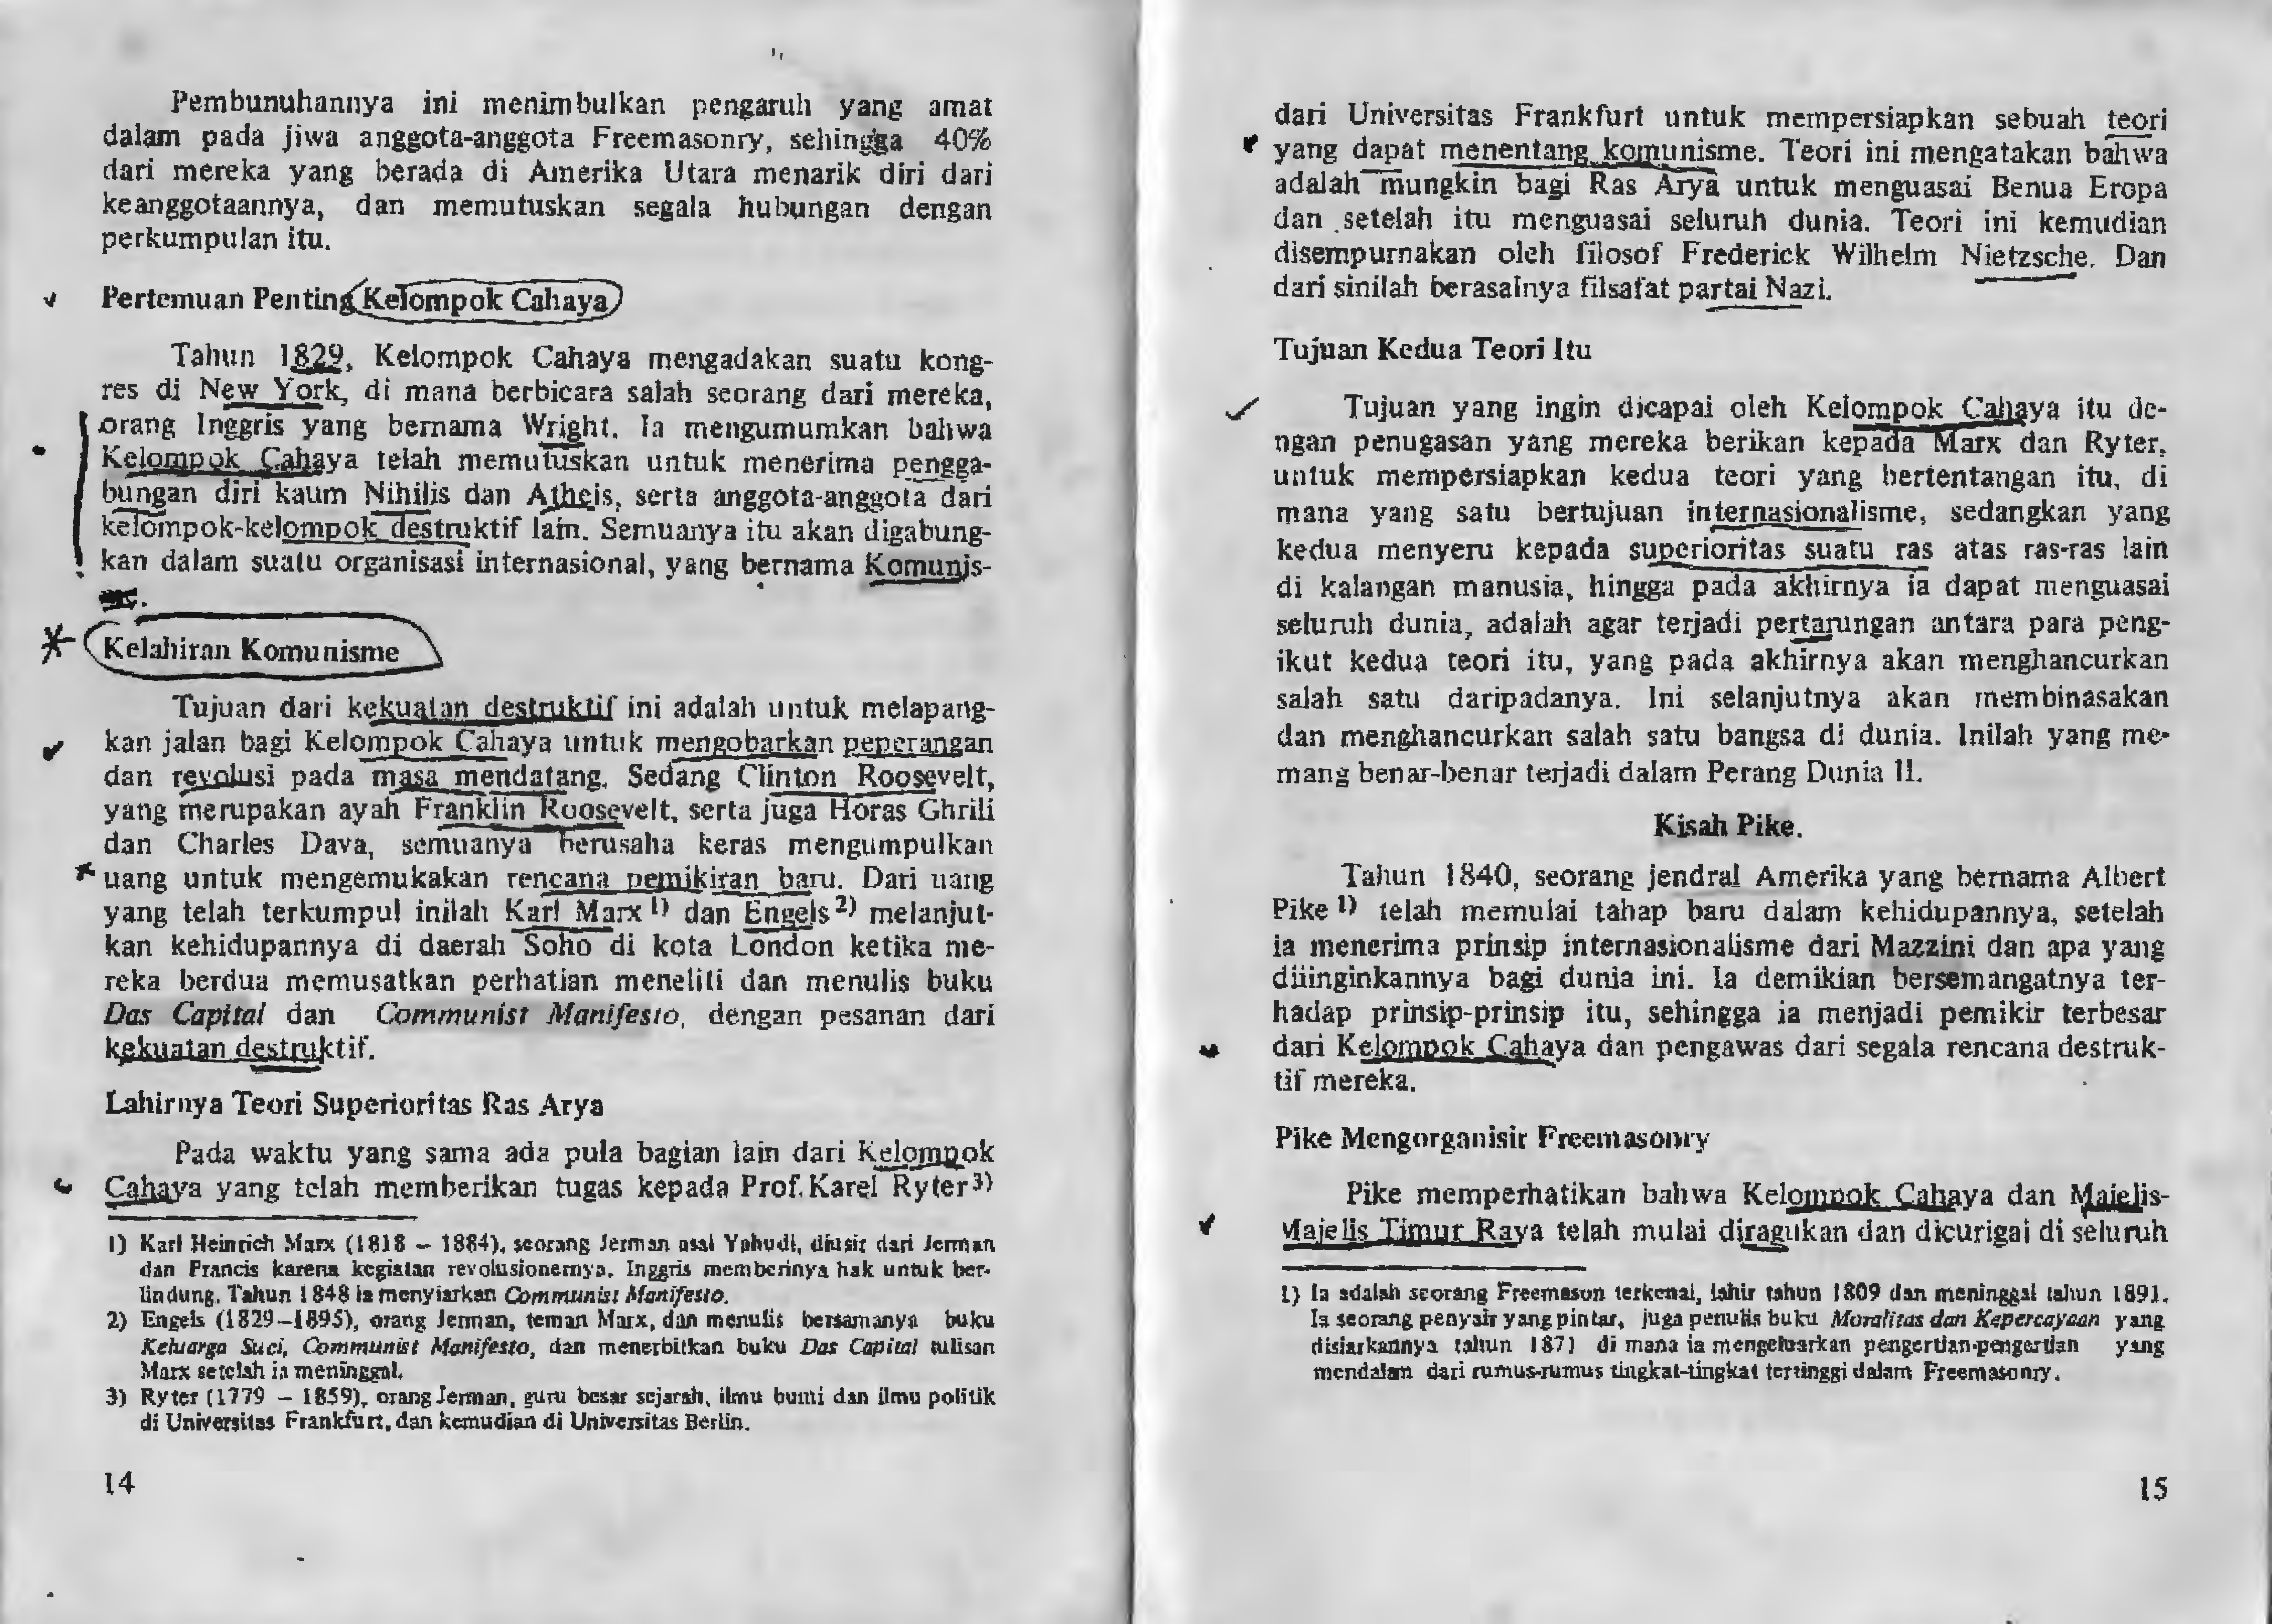 Pembunuhannya ini menimbulkan pengaruh yang amat
dalam pada jiwa anggota-anggota Freemasonry, sehingga 40%
dari mereka yang berada di Amerika Utara menarik diri dari
keanggotaannya, dan memutuskan segala hubungan dengan
perkumpulan itu.
Pertemuan Penting Kelompok Cahaya
Tahun 1829, Kelompok Cahaya mengadakan suatu kong-
res di New York, di mana berbicara salah seorang dari mereka,
orang Inggris yang bernama Wright. Ia mengumumkan bahwa
Kelompok Cahaya telah memutuskan untuk menerima pengga-
bungan diri kaum Nihilis dan Atheis, serta anggota-anggota dari
kelompok-kelompok destruktif lain. Semuanya itu akan digabung-
kan dalam suatu organisasi internasional, yang bernama Komunis-
Kelahiran Komunisme
Tujuan dari kekuatan destruktif ini adalah untuk melapang-
kan jalan bagi Kelompok Cahaya untuk mengobarkan peperangan
dan revolusi pada masa mendatang. Sedang Clinton Roosevelt,
yang merupakan ayah Franklin Roosevelt, serta juga Horas Ghrili
dan Charles Dava, semuanya berusaha keras mengumpulkan
uang untuk mengemukakan rencana pemikiran baru. Dari uang
yang telah terkumpul inilah Karl Marx 1) dan Engels 2) melanjut-
kan kehidupannya di daerah Soho di kota London ketika me-
reka berdua memusatkan perhatian meneliti dan menulis buku
Das Capital dan Communist Manifesto, dengan pesanan dari
kekuatan destruktif.
Lahirnya Teori Superioritas Ras Arya
Pada waktu yang sama ada pula bagian lain dari Kelompok
Cahaya yang telah memberikan tugas kepada Prof. Karel Ryter 3)
1) Karl Heinrich Marx (1818 – 1884), seorang Jerman asal Yahudi, diusir dari Jerman
dan Prancis karena kegiatan revolusionernya. Inggris memberinya hak untuk ber-
lindung. Tahun 1848 ia menyiarkan Communist Manifesto.
2) Engels (1829–1895), orang Jerman, teman Marx, dan menulis bersamanya buku
Keluarga Suci, Communist Manifesto, dan menerbitkan buku Das Capital tulisan
Marx setelah ia meninggal.
3) Ryter (1779 – 1859), orang Jerman, guru besar sejarah, ilmu bumi dan ilmu politik
di Universitas Frankfurt, dan kemudian di Universitas Berlin.
14
dari Universitas Frankfurt untuk mempersiapkan sebuah teori
yang dapat menentang komunisme. Teori ini mengatakan bahwa
adalah mungkin bagi Ras Arya untuk menguasai Benua Eropa
dan setelah itu menguasai seluruh dunia. Teori ini kemudian
disempurnakan oleh filosof Frederick Wilhelm Nietzsche. Dan
dari sinilah berasalnya filsafat partai Nazi.
Tujuan Kedua Teori Itu
Tujuan yang ingin dicapai oleh Kelompok Cahaya itu de-
ngan penugasan yang mereka berikan kepada Marx dan Ryter,
untuk mempersiapkan kedua teori yang bertentangan itu, di
mana yang satu bertujuan internasionalisme, sedangkan yang
kedua menyeru kepada superioritas suatu ras atas ras-ras lain
di kalangan manusia, hingga pada akhirnya ia dapat menguasai
seluruh dunia, adalah agar terjadi pertarungan antara para peng-
ikut kedua teori itu, yang pada akhirnya akan menghancurkan
salah satu daripadanya. Ini selanjutnya akan membinasakan
dan menghancurkan salah satu bangsa di dunia. Inilah yang me-
mang benar-benar terjadi dalam Perang Dunia II.
Kisah Pike.
Tahun 1840, seorang jendral Amerika yang bernama Albert
Pike 1) telah memulai tahap baru dalam kehidupannya, setelah
ia menerima prinsip internasionalisme dari Mazzini dan apa yang
diinginkannya bagi dunia ini. Ia demikian bersemangatnya ter-
hadap prinsip-prinsip itu, sehingga ia menjadi pemikir terbesar
dari Kelompok Cahaya dan pengawas dari segala rencana destruk-
tif mereka.
Pike Mengorganisir Freemasonry
Pike memperhatikan bahwa Kelompok Cahaya dan Majelis-
Majelis Timur Raya telah mulai diragukan dan dicurigai di seluruh
1) Ia adalah seorang Freemason terkenal, lahir tahun 1809 dan meninggal tahun 1891.
Ia seorang penyair yang pintar, juga penulis buku Moralitas dan Kepercayaan yang
disiarkannya tahun 1871 di mana ia mengeluarkan pengertian-pengertian yang
mendalam dari rumus-rumus tingkat-tingkat tertinggi dalam Freemasonry.
15